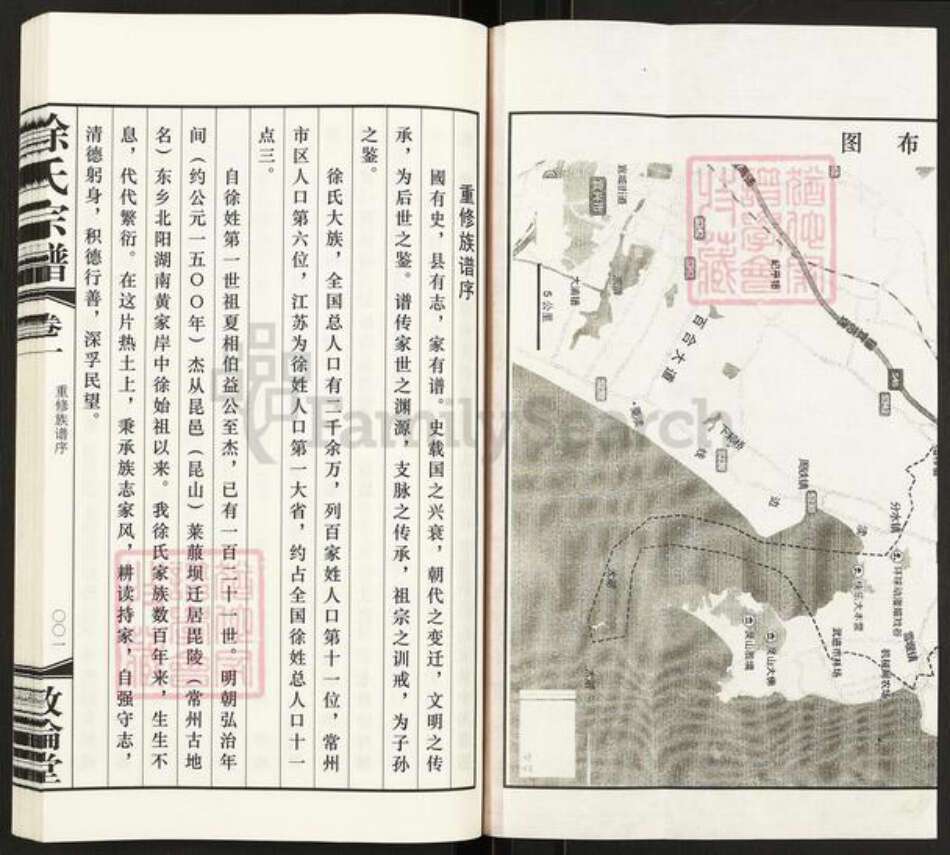 布
图
百合大道
5公里
大浦镇
周铁镇
分水镇
环球动漫嬉戏谷
雪堰镇
灵山大佛
大浮
FamilySearch
重修族谱序
國有史，县有志，家有谱。史载国之兴衰，朝代之变迁，文明之传
承，为后世之鉴。谱传家世之渊源，支脉之传承，祖宗之训戒，为子孙
之鉴。
徐氏大族，全国总人口有二千余万，列百家姓人口第十一位，常州
市区人口第六位，江苏为徐姓人口第一大省，约占全国徐姓总人口十一
点三。
自徐姓第一世祖夏相伯益公至杰，已有一百二十一世。明朝弘治年
间（约公元一五〇〇年）杰从昆邑（昆山）莱菔坝迁居毘陵（常州古地
名）东乡北阳湖南黄家岸中徐始祖以来。我徐氏家族数百年来，生生不
息，代代繁衍。在这片热土上，秉承族志家风，耕读持家，自强守志，
清德躬身，积德行善，深孚民望。
徐氏宗谱
卷一
重修族谱序
〇〇一
敦伦堂